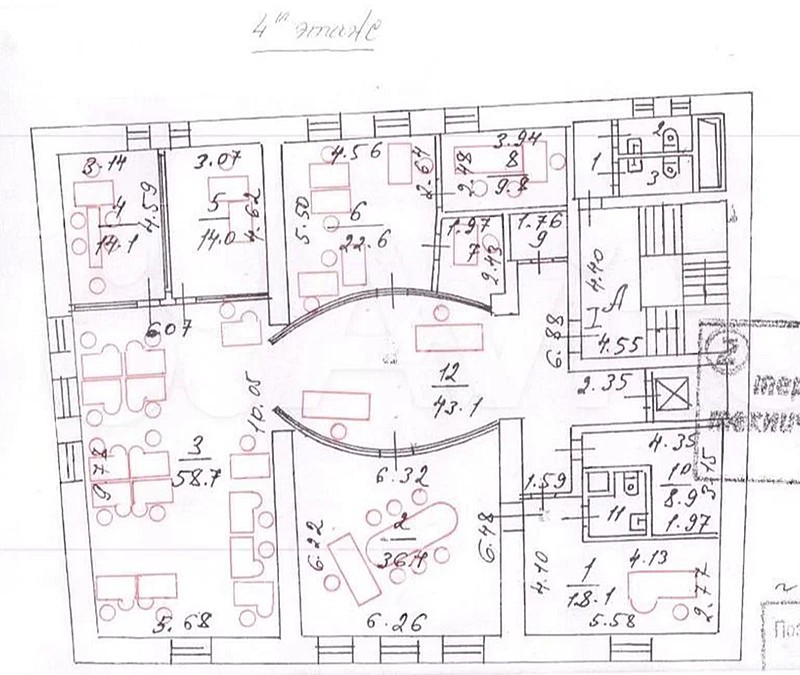 4й этаж
3.14
4
14.1
4.59
3.07
5
14.0
4.62
4.56
5.50
6
22.6
2.64
3.94
2.48
8
9.8
1.97
7
2.43
1.76
9
1
2
3
4.40
I
A
4.55
6.88
2.35
607
10.05
3
58.7
9.78
5.68
12
43.1
6.32
6.22
2
6.48
6.26
1.59
4.35
10
8.9
3.15
1.97
11
4.10
1
18.1
4.13
2.77
5.58
2